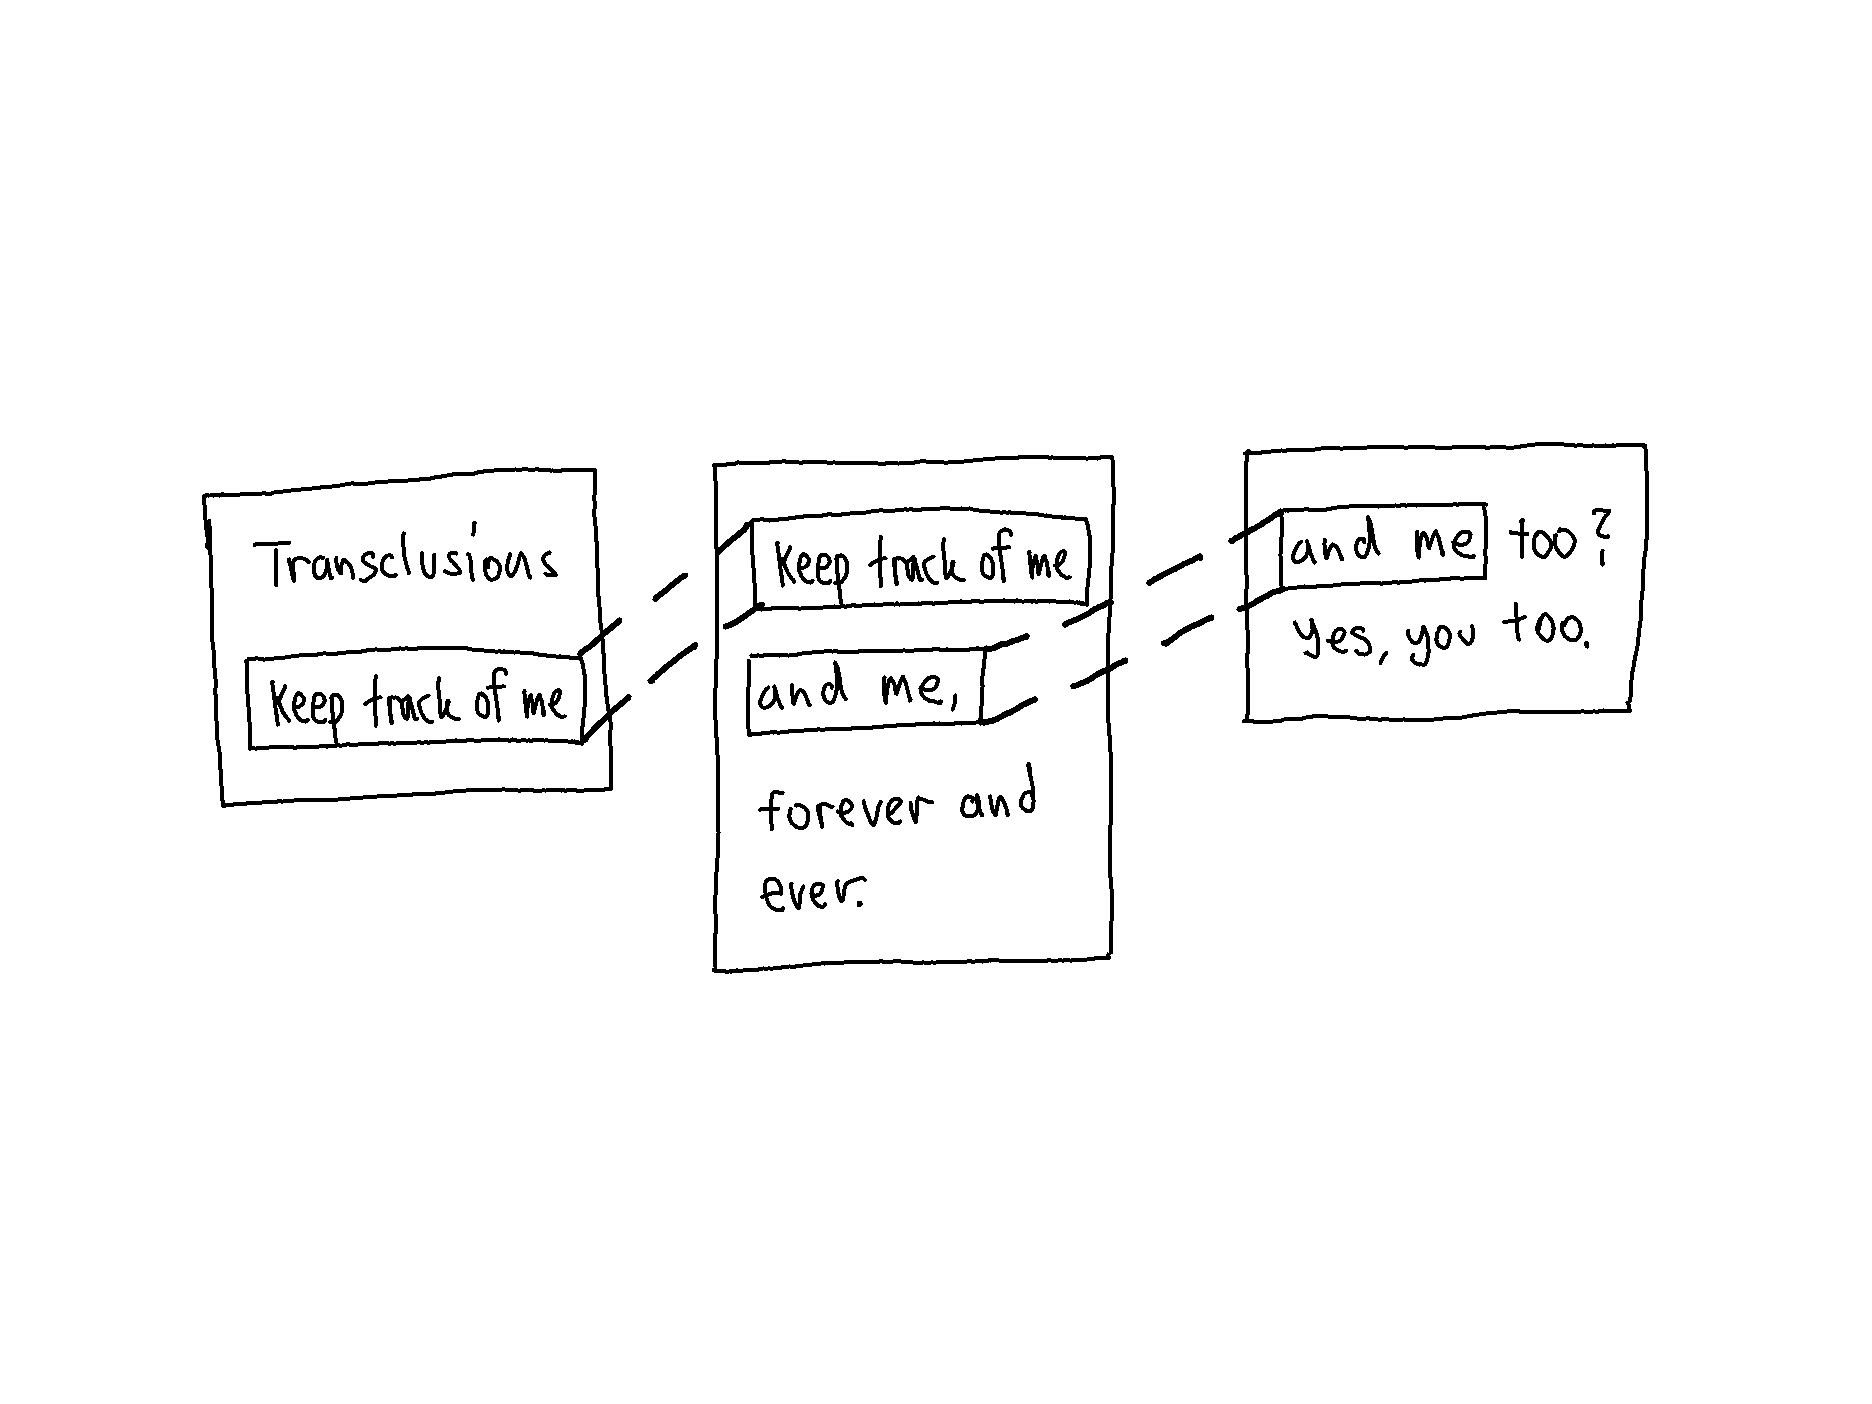 Transclusious
keep track of me
keep track of me
and me,
forever and
ever.
and me too?
yes, you too.